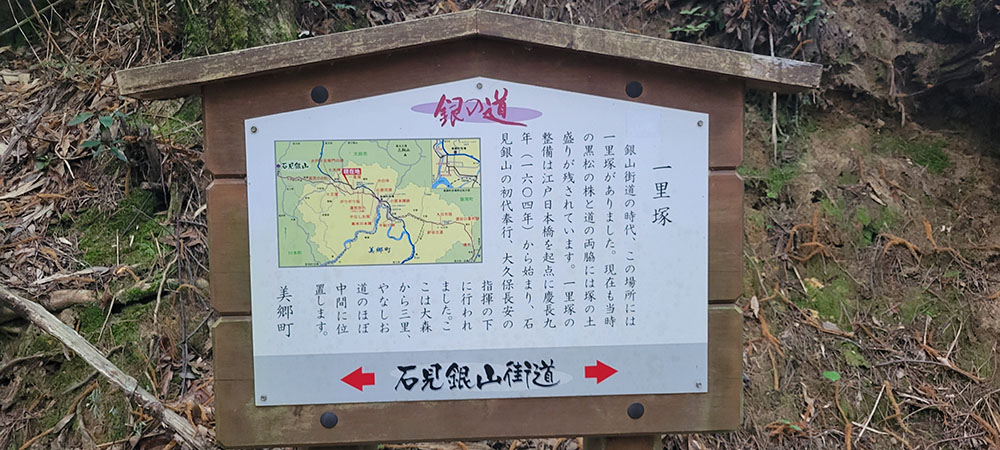 銀の道
一里塚
銀山街道の時代、この場所には
一里塚がありました。現在も当時
の黒松の株と道の両脇には塚の土
盛りが残されています。一里塚の
整備は江戸日本橋を起点に慶長九
年（一六〇四年）から始まり、石
見銀山の初代奉行、大久保長安の
指揮の下
に行われ
ました。こ
こは大森
から三里、
やなしお
道のほぼ
中間に位
置します。
美郷町
石見銀山
現在地
美郷町
石見銀山街道